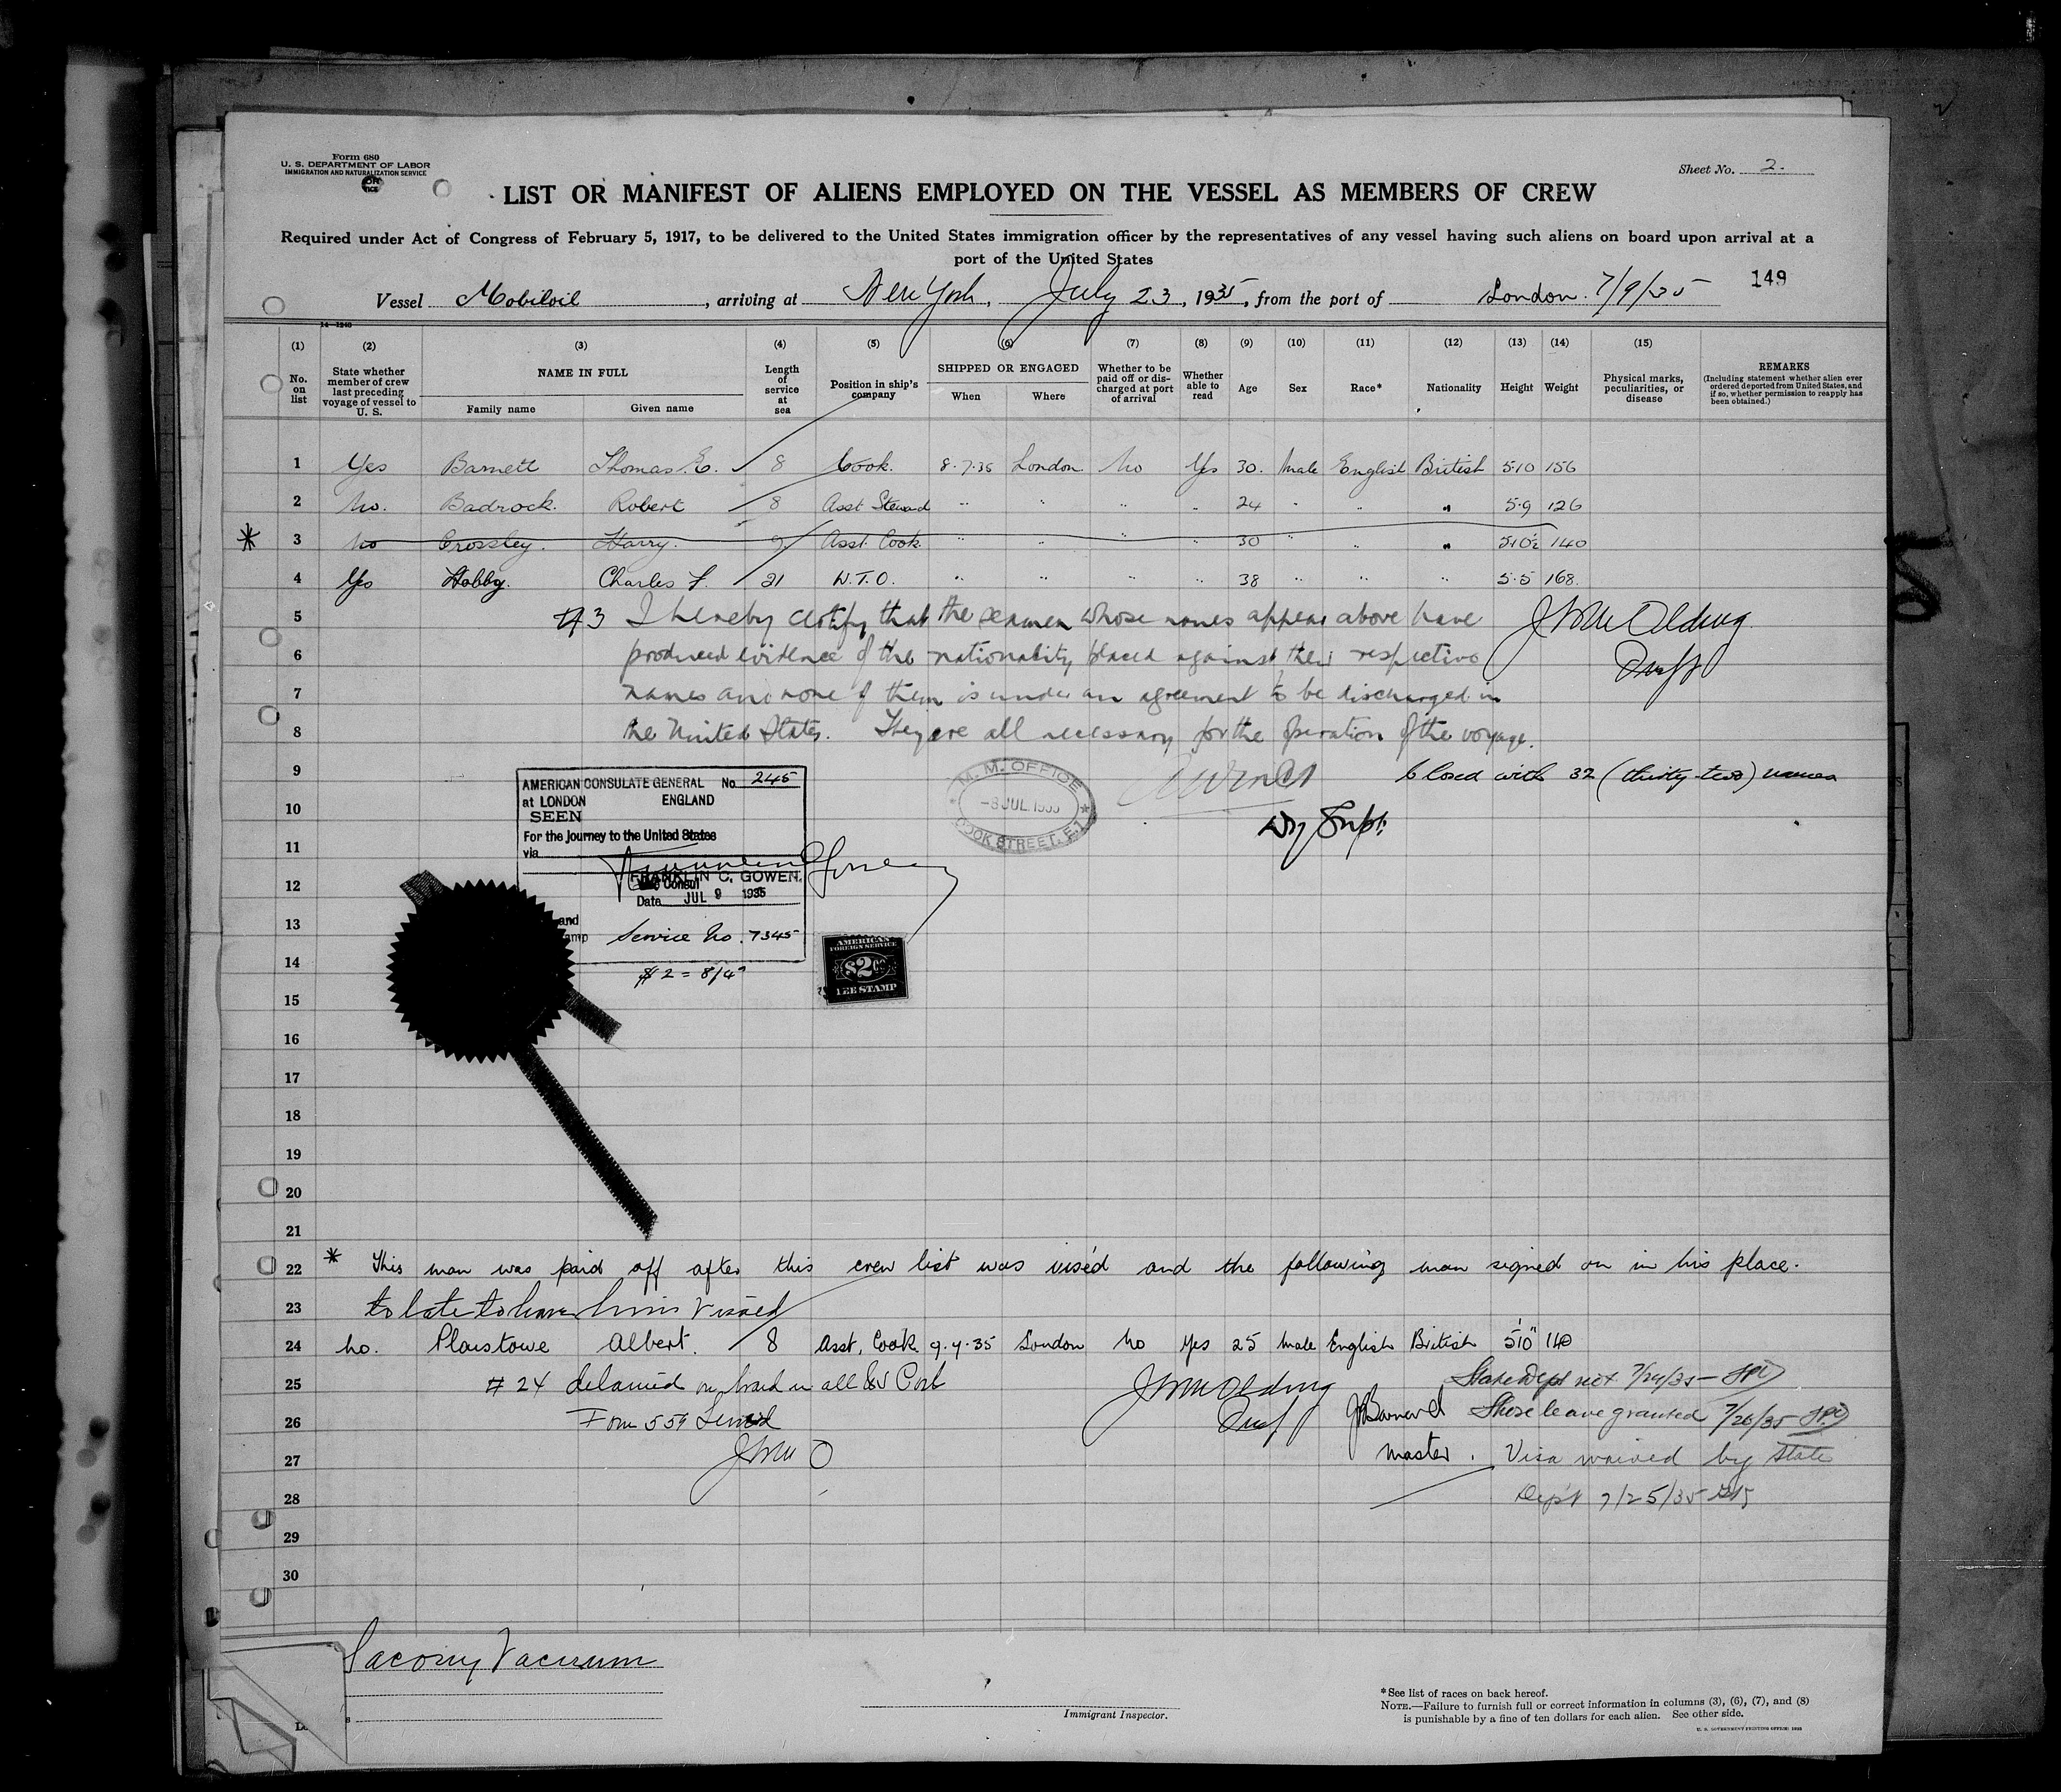 Form 680
U. S. DEPARTMENT OF LABOR
IMMIGRATION AND NATURALIZATION SERVICE
Sheet No. 2.
LIST OR MANIFEST OF ALIENS EMPLOYED ON THE VESSEL AS MEMBERS OF CREW
Required under Act of Congress of February 5, 1917, to be delivered to the United States immigration officer by the representatives of any vessel having such aliens on board upon arrival at a
port of the United States
149
Vessel Mobiloil, arriving at New York, July 23, 1935, from the port of London. 7/9/35
(1) (2) (3) (4) (5) (6) (7) (8) (9) (10) (11) (12) (13) (14) (15)
No. on list
State whether member of crew last preceding voyage of vessel to U. S.
NAME IN FULL
Family name Given name
Length of service at sea
Position in ship's company
SHIPPED OR ENGAGED
When Where
Whether to be paid off or discharged at port of arrival
Whether able to read
Age Sex Race* Nationality Height Weight
Physical marks, peculiarities, or disease
REMARKS
(Including statement whether alien ever ordered deported from United States, and if so, whether permission to reapply has been obtained.)
1 Yes Barnett Thomas E. 8 Cook. 8.7.35 London No Yes 30. Male English British 5.10 156
2 No. Badrock. Robert 8 Asst Steward " " " " 24 " " " 5.9 126
* 3 No Crossley. Harry. 9 Asst. Cook " " " " 30 " " " 5.10½ 140
4 Yes Hobby. Charles F. 21 W.T.O. " " " " 38 " " " 5.5 168.
5 #3 I hereby certify that the seamen whose names appear above have
6 produced evidence of the nationality placed against their respective
7 names and none of them is under an agreement to be discharged in
8 the United States. They are all necessary for the operation of the voyage.
9 Closed with 32 (thirty-two) names
10 Dy Supt.
M. M. OFFICE
-8 JUL 1935
COOK STREET. E.1
AMERICAN CONSULATE GENERAL No. 245
at LONDON ENGLAND
SEEN
For the journey to the United States
via
FRANKLIN C. GOWEN.
Vice Consul
Date JUL 9 1935
and
amp Service No. 7345
$2 = 8/4
AMERICAN
FOREIGN SERVICE
$2.00
FEE STAMP
11
12
13
14
15
16
17
18
19
20
21
22 * This man was paid off after this crew list was viséd and the following man signed on in his place.
23 to late to have him viséed
24 No. Plaistowe Albert. 8 Asst. Cook 9.7.35 London No Yes 25 Male English British 5'10" 140
25 #24 detained on board in all US Port
State Dept not 7/24/35
26 Form 559 Served
Shore leave granted 7/26/35
27 Master. Visa waived by State
28 Dept 7/25/35
29
30
Socony Vacuum
Immigrant Inspector.
*See list of races on back hereof.
NOTE.—Failure to furnish full or correct information in columns (3), (6), (7), and (8)
is punishable by a fine of ten dollars for each alien. See other side.